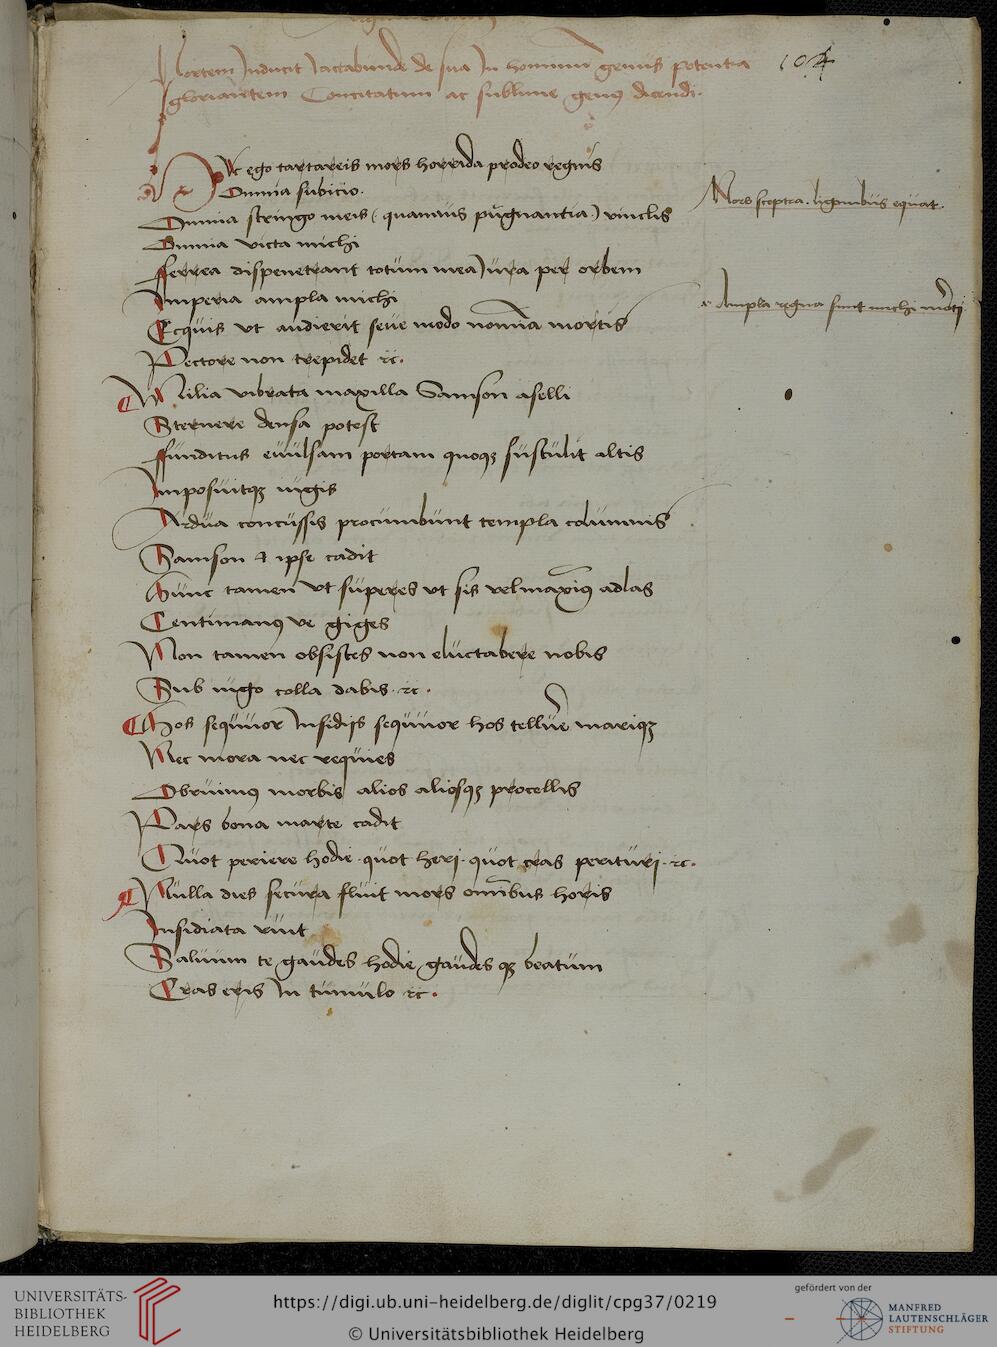 Mortem Inducit Iactabunde de sua In hominum genus potentia
gloriantem Concitatum ac sublime genus dicendi.
104
Hec ego tartareis mors horrida prodeo regnis
Omnia subicio.
Omnia stringo meis (quamuis pugnantia) vinclis
Omnia victa michi
fferrea dispenetrant totum mea Iura per orbem
Imperia ampla michi
Ecquis vt audierit seue modo nomina mortis
Pectore non trepidet etc.
Mors sceptra. ligonibus equat.
Ampla regna sunt michi morti
Milia vibrata maxilla Samson aselli
Sternere densa potest
ffunditus euulsam portam quoque sustulit altis
Imposuitque iugis
Ardua concussis procumbunt templa columnis
Samson et ipse cadit
Hunc tamen vt superes vt sis vel maximus adlas
Centimanus ve giges
Non tamen obsistes non eluctabere nobis
Sub iugo colla dabis. etc.
Hos sequuor Insidiis sequuor hos tellure marique
Nec mora nec requies
Obruimus morbis alios aliosque procellis
Pars bona marte cadit
Quot periere hodie. quot heri. quot cras perituri. etc.
Nulla dies secura fluit mors omnibus horis
Insidiata ruit
Saluum te gaudes hodie gaudes que beatum
Cras eris In tumulo etc.
UNIVERSITÄTS-
BIBLIOTHEK
HEIDELBERG
https://digi.ub.uni-heidelberg.de/diglit/cpg37/0219
© Universitätsbibliothek Heidelberg
gefördert von der
MANFRED
LAUTENSCHLÄGER
STIFTUNG